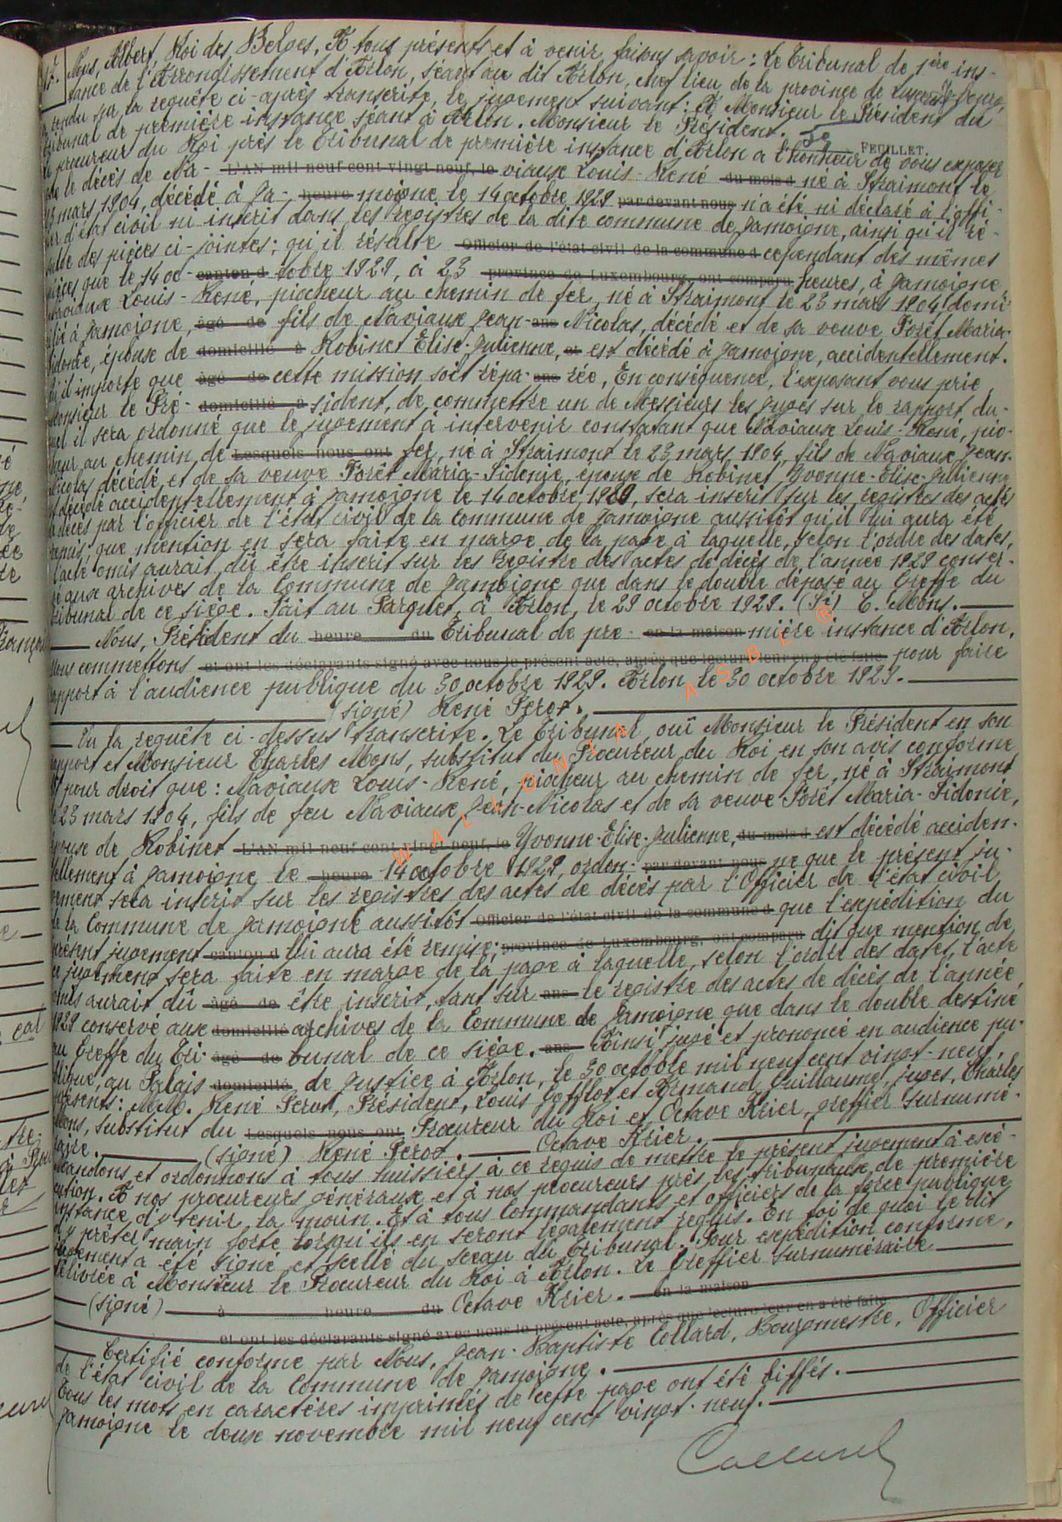 Nous, Albert, Roi des Belges, A tous présents et à venir, faisons savoir : Le Tribunal de 1ère ins-
tance de l'Arrondissement d'Arlon, séant au dit Arlon, chef lieu de la province de Luxembourg,
rendu sur la requête ci-après transcrite, le jugement suivant : A Monsieur le Président du
Tribunal de première instance séant à Arlon. Monsieur le Président. FEUILLET.
Le procureur du Roi près le Tribunal de première instance d'Arlon a l'honneur de vous exposer
que le décès de Na- L'AN mil neuf cent vingt-neuf, le viaux Louis-René du mois d né à Straimont le
23 mars 1904, décédé à Ja- heure moigne le 14 octobre 1929 par devant nous n'a été ni déclaré à l'offi-
cier d'état civil ni inscrit dans les registres de la dite commune de Jamoigne, ainsi qu'il ré-
sulte des pièces ci-jointes ; qu'il résulte Officier de l'état civil de la commune d cependant des mêmes
pièces que le 14 oc- canton d tobre 1929, à 23 province de Luxembourg, ont comparu heures, à Jamoigne,
Naviaux Louis-René, piocheur au chemin de fer, né à Straimont le 23 mars 1904, domi-
cilié à Jamoigne, âgé de fils de Naviaux Jean- ans Nicolas, décédé et de sa veuve Forêt Maria-
Sidonie, époux de domicilié à Robinet Elise-Julienne, et est décédé à Jamoigne, accidentellement.
Qu'il importe que âgé de cette mission soit répa- ans rée, En conséquence, l'exposant vous prie,
Monsieur le Pré- domicilié à sident, de commettre un de Messieurs les juges sur le rapport du-
quel il sera ordonné que le jugement à intervenir constatant que Naviaux Louis-René, pio-
cheur au chemin de Lesquels nous ont fer, né à Straimont le 23 mars 1904, fils de Naviaux Jean-
Nicolas décédé, et de sa veuve Forêt Maria-Sidonie, époux de Robinet Yvonne-Elise-Julienne
est décédé accidentellement à Jamoigne le 14 octobre 1929, sera inscrit sur les registres des actes
de décès par l'officier de l'état civil de la Commune de Jamoigne aussitôt qu'il lui aura été
remis ; que mention en sera faite en marge de la page à laquelle, selon l'ordre des dates,
l'acte omis aurait dû être inscrit sur les registre des actes de décès de l'année 1929 conser-
vé aux archives de la Commune de Jamoigne que dans le double déposé au Greffe du
Tribunal de ce siège. Fait au Parquet, à Arlon, le 29 octobre 1929. (Sé) C. Mons.
Nous, Président du heure du Tribunal de pre- en la maison mière instance d'Arlon,
Nous commettons et ont les déclarants signé avec nous le présent acte, après que lecture leur en a été faite pour faire
rapport à l'audience publique du 30 octobre 1929. Arlon, le 30 octobre 1929.
(signé) René Perot.
Vu la requête ci-dessus transcrite. Le Tribunal, ouï Monsieur le Président en son
rapport et Monsieur Charles Mons, substitut du Procureur du Roi en son avis conforme
dit pour droit que : Naviaux Louis-René, piocheur au chemin de fer, né à Straimont
le 23 mars 1904, fils de feu Naviaux Jean-Nicolas et de sa veuve Forêt Maria-Sidonie,
époux de Robinet L'AN mil neuf cent vingt-neuf, le Yvonne-Elise-Julienne, du mois d est décédé acciden-
tellement à Jamoigne le heure 14 octobre 1929, ordon- par devant nous ne que le présent ju-
gement sera inscrit sur les registres des actes de décès par l'Officier de l'état civil
de la Commune de Jamoigne aussitôt Officier de l'état civil de la commune d que l'expédition du
présent jugement canton d lui aura été remise ; province de Luxembourg, ont comparu dit que mention de
ce jugement sera faite en marge de la page à laquelle, selon l'ordre des dates, l'acte
omis aurait dû âgé de être inscrit, tant sur ans le registre des actes de décès de l'année
1929 conservé aux domicilié archives de la Commune de Jamoigne que dans le double destiné
au Greffe du Tri- âgé de bunal de ce siège. ans Ainsi jugé et prononcé en audience pu-
blique, au Palais domicilié de Justice à Arlon, le 30 octobre mil neuf cent vingt-neuf,
présents : MM. René Perot, Président, Louis Gofflot et Armand Guillaume, juges, Charles
Mons, substitut du Lesquels nous ont Procureur du Roi et Octave Krier, greffier surnumé-
raire. (signé) René Perot. Octave Krier.
Mandons et ordonnons à tous huissiers à ce requis de mettre le présent jugement à exé-
cution. A nos procureurs généraux et à nos procureurs près les tribunaux de première
instance, d'y tenir la main. Et à tous Commandants et officiers de la force publique
d'y prêter main forte lorsqu'ils en seront légalement requis. En foi de quoi le dit
jugement a été signé et scellé du sceau du tribunal. Pour expédition conforme,
délivrée à Monsieur le Procureur du Roi à Arlon. Le Greffier surnuméraire
(signé) à heure du Octave Krier. en la maison
et ont les déclarants signé avec nous le présent acte, après que lecture leur en a été faite
Certifié conforme par Nous, Jean-Baptiste Collard, Bourgmestre, Officier
de l'état civil de la Commune de Jamoigne.
Tous les mots en caractères imprimés de cette page ont été biffés.
Jamoigne le deux novembre mil neuf cent vingt-neuf.
Collard
WALLONIA ASBL ©